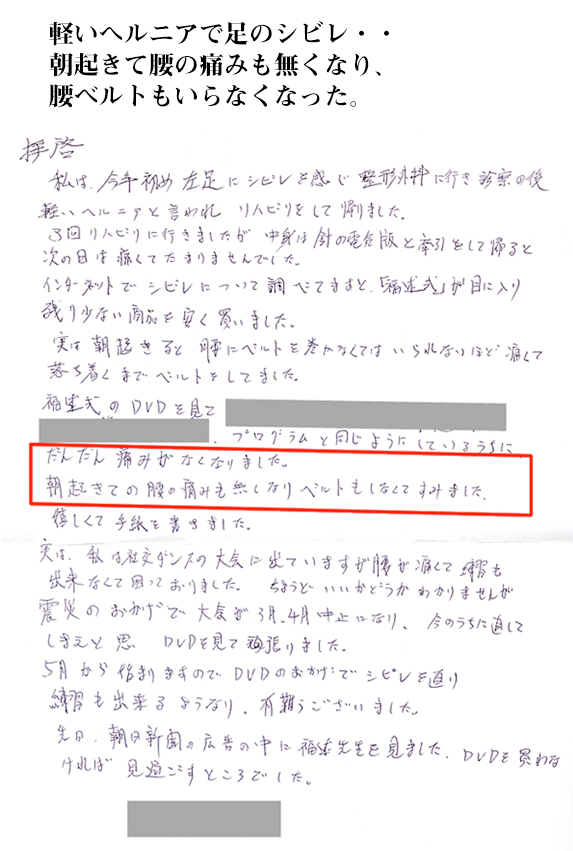 軽いヘルニアで足のシビレ・・
朝起きて腰の痛みも無くなり、
腰ベルトもいらなくなった。
拝啓
私は、今年初め左足にシビレを感じ整形外科に行き診察の後
軽いヘルニアと言われリハビリをして帰りました。
3回リハビリに行きましたが中身は針の電台版と牽引をして帰ると
次の日は痛くてたまりませんでした。
インターネットでシビレについて調べてますと、「福辻式」が目に入り
残り少ない商品を安く買いました。
実は朝起きると腰にベルトを巻かなくてはいられないほど痛くて
落ち着くまでベルトをしてました。
福辻式のDVDを見て
、プログラムと同じようにしているうちに
だんだん痛みがなくなりました。
朝起きての腰の痛みも無しなりベルトもしなくてすみました。
嬉しくて手紙を書きました。
実は、私は社交ダンスの大会に出ていますが腰が痛くて練習も
出来なくて困っておりました。ちょうどいいかどうかわかりませんが
震災のおかげで大会が3月、4月中止になり、今のうちに直して
しまえと思 DVDを見て頑張りました。
5月から始まりますのでDVDのおかげでシビレも直り
練習も出来るようなり、有難うございました。
先日、朝日新聞の広告の中に福辻先生を見ました、DVDを買わな
ければ見過ごすところでした。